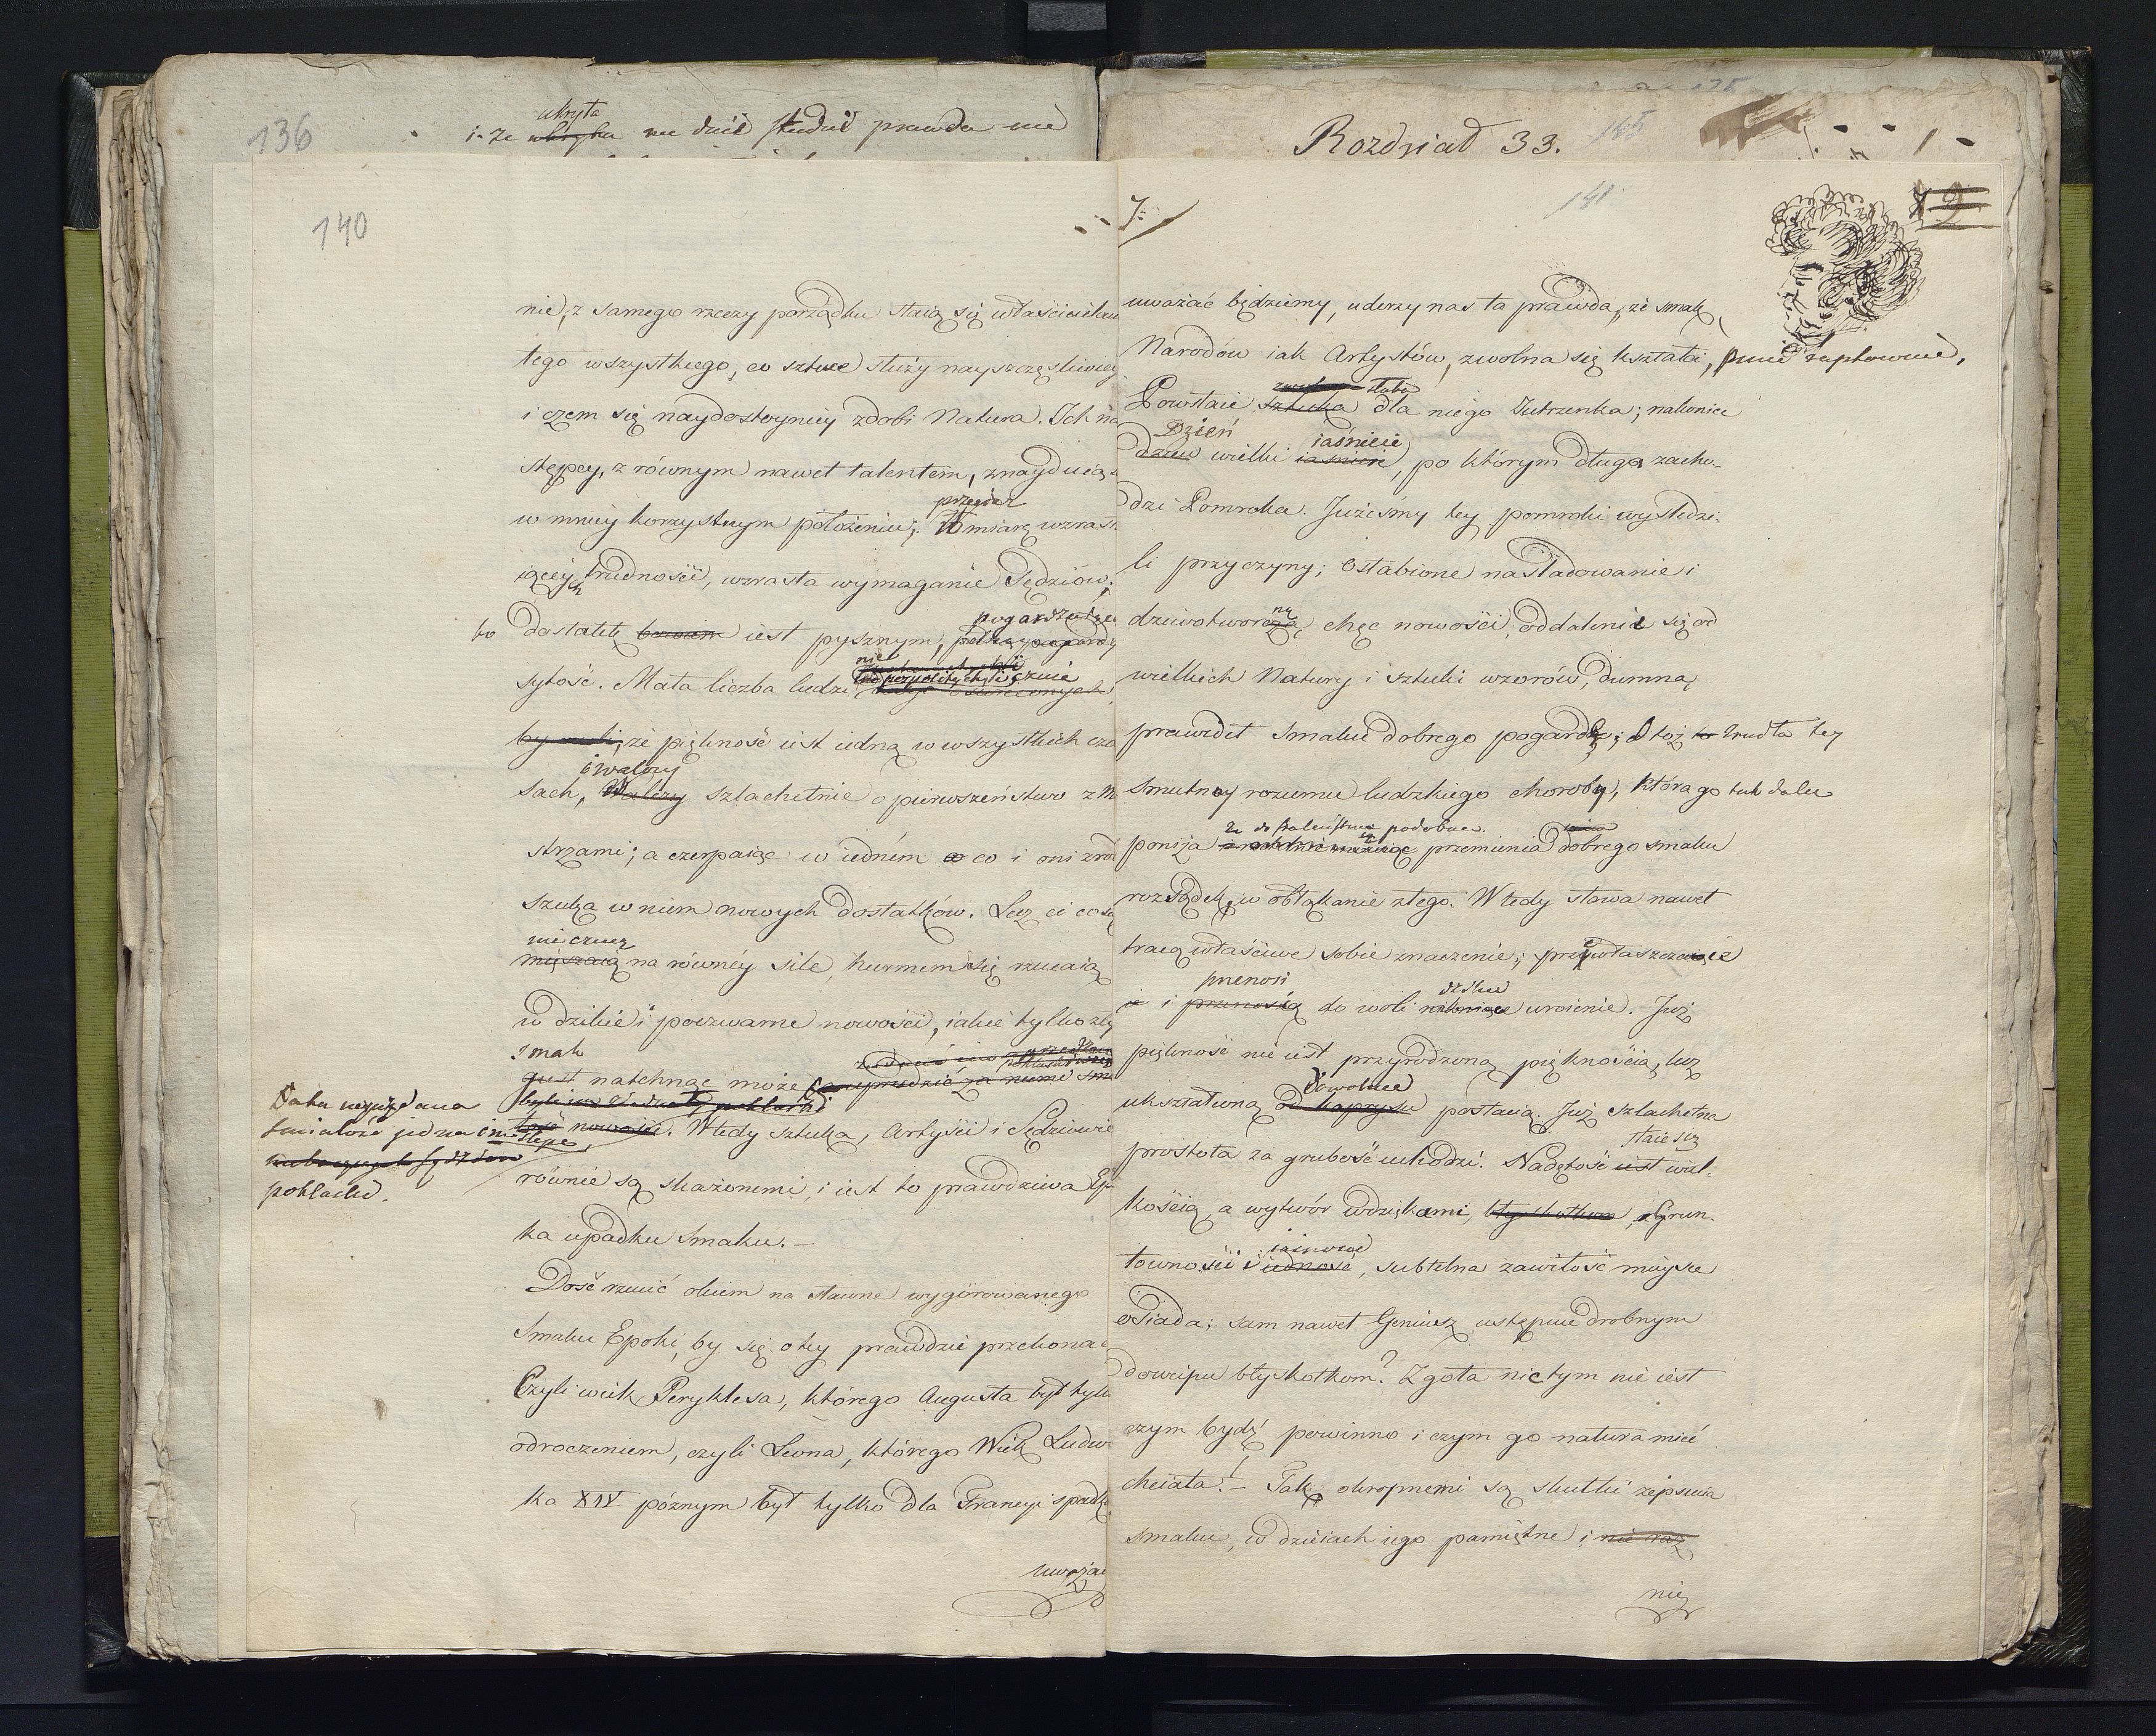 136
ukryta
i ze nie dziś prawda nie
140
nie, z samego rzeczy porządku staią się właścicielam
tego wszystkiego, co sztuce służy nayszczęśliwiey
i czem się naydostoyniey zdobi Natura. Ich na
stępcy, z równym nawet talentem, znayduią s
przeciez
w mniey korzystnym położeniu; W miarę wzrast
aiącey trudności, wzrasta wymaganie Sędziów;
bo dostatek iest pysznym, pogardza
sytość. Mała liczba ludzi
nie pospolitych czuie
że piękność iest iedną w wszystkich cza
i walczy
sach, walczy szlachetnie o pierwszeństwo z Mi
strzami; a czerpaiąc w iedném co i oni zró
szuka w niem nowych dostatków. Lecz ci co są
nie czuią
na równéy sile, hurmem się rzucaią
w dzikie i poczwarne nowości, iakie tylko zły
smak
gust natchnąć może
Taka
śmiałość iedna
poklaski.
nowości. Wtedy sztuka, Artyści i Sędziowie
równie są skażonemi, i iest to prawdziwa Epo
ka upadku smaku. —
Dość rzucić okiem na sławne wygórowanego
smaku Epoki, by się o tey prawdzie przekonać
Czyli wiek Peryklesa, którego Augusta był tylk
odroczeniem, czyli Leona, którego Wiek Ludwi
ka XIV póznym był tylko dla Francyi spadk
uważać
Rozdział 33.
165
7:
141
2
uważać będziemy, uderzy nas ta prawda, że smak
Narodów iak Artystów, zwolna się kształci, psuie raptownie,
słaba
Powstaie sztuka dla niego Jutrzenka; nakoniec
Dzień iaśnieie
dzień wielki iaśnieie, po którym długa zacho-
dzi Pomroka. Jużeśmy tey pomroki wyśledzi-
li przyczyny; Osłabione naśladowanie i
ną
dziwotworczą chęć nowości, oddalenie się od
wielkich Natury i sztuki wzorów, dumną
prawideł smaku dobrego pogardę; Otoż to źrudła tey
smutney rozumu ludzkiego choroby, która go tak dalece
że do szaleństwa podobne
poniża przemienia dobrego smaku
rozsądek, w obłąkanie złego. Wtedy słowa nawet
tracą właściwe sobie znaczenie; przywłaszczenie
przenosi dzikie
ie i przenoszą do woli uroienie. Już
piękność nie iest przyrodzoną pięknością, lecz
dowolnie
ukształconą od kaprysu postacią. Już szlachetna
staie się
prostota za grubość uchodzi. Nadętość iest wiel-
kością, a wytwór wdziękami, błyskotkom, Grun-
iasnosci
towności i iedność, subtelna zawiłość mieysce
osiada; sam nawet Geniusz ustępuie drobnym
dowcipu błyskotkom? Zgoła nic tym nie iest
czym bydź powinno i czym go natura mieć
chciała! — Tak okropnemi są skutki zepsucia
smaku, w dzieiach iego pamiętne i nie raz
nie